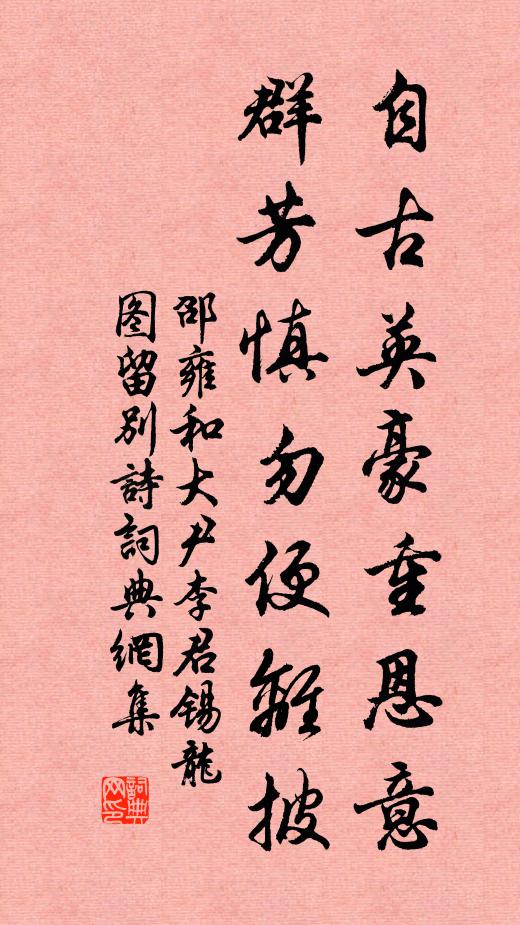 自古英豪重恩意
群芳慎勿便離披
邵雍和大尹李君锡龍
图留別詩詞典網集
詞典
网印